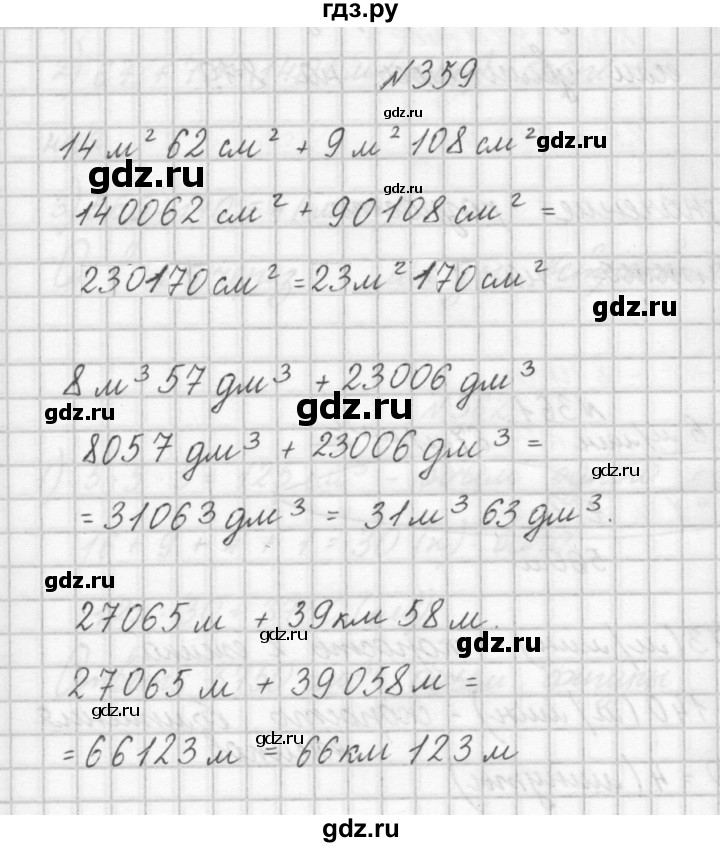 гдз.ру
№359
14 м² 62 см² + 9 м² 108 см²
gdz.ru
gdz.ru
gdz.ru
gdz.ru
140062 см² + 90108 см² =
230170 см² = 23 м² 170 см²
gdz.ru
8 м³ 57 дм³ + 23006 дм³
gdz.ru
gdz.ru
8057 дм³ + 23006 дм³ =
gdz.ru
= 31063 дм³ = 31 м³ 63 дм³.
gdz.ru
27065 м + 39 км 58 м.
gdz.ru
gdz.ru
27065 м + 39058 м =
gdz.ru
= 66123 м = 66 км 123 м
gdz.ru
gdz.ru